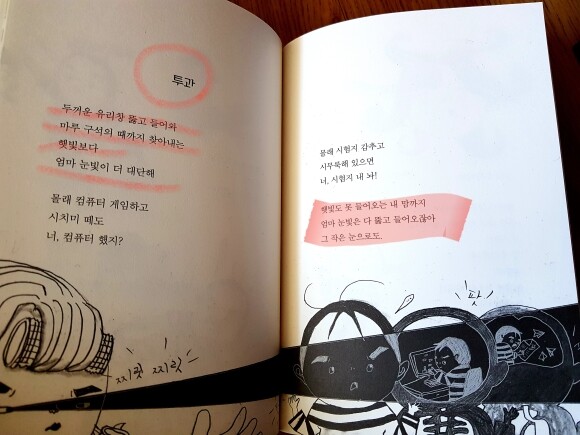 투과
두꺼운 유리창 뚫고 들어와
마루 구석의 때까지 찾아내는
햇빛보다
엄마 눈빛이 더 대단해
몰래 컴퓨터 게임하고
시치미 떼도
너, 컴퓨터 했지?
찌릿 찌릿
몰래 시험지 감추고
시무룩해 있으면
너, 시험지 내 놔!
햇빛도 못 들어오는 내 맘까지
엄마 눈빛은 다 뚫고 들어오잖아
그 작은 눈으로도.
팟